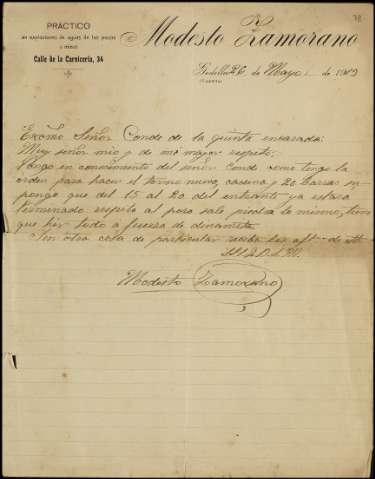 PRÁCTICO
en explotaciones de aguas de los pozos
y minas
Calle de la Carnicería, 34
Modesto Zamorano
26 de Mayo de 19
Excmo Señor Conde de la quinta enjarada:
Muy señor mio y de mi mayor respeto:
Pongo en conocimiento del señor Conde como tengo la
orden para hacer el torno nuevo, y 20 barras su
pongo que del 15 al 20 del entrante ya estara
terminado respeto al pozo sale piedra lo mismo, tiene
que hir todo a fuerza de dinamita.
Sin otra cosa de particular reciba los aftº de
Modesto Zamorano